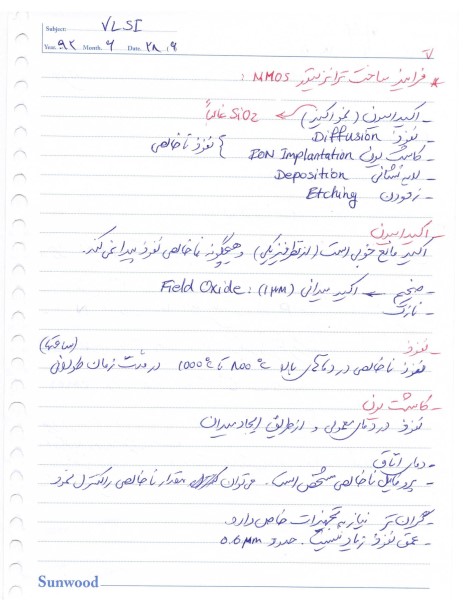 Subject: VLSI
Year. 92 Month. 6 Date. 28, 9
* فرایند ساخت ترانزیستور NMOS :
- اکسیداسیون (نمو اکسید) ← SiO2 غالباً
- نفوذ Diffusion
- کاشت یون ION Implantation } نفوذ ناخالصی
- لایه نشانی Deposition
- زدودن Etching
- اکسیداسیون
اکسید مانع خوبی است (از نظر فیزیکی) و هیچگونه ناخالصی نفوذ پیدا نمی‌کند.
- ضخیم ← اکسید میدانی (1μm) : Field Oxide
- نازک
- نفوذ
نفوذ ناخالصی در دماهای بالا 800°C تا 1000°C در مدت زمان طولانی (ساعتها)
- کاشت یون
نفوذ در دمای معمولی و از طریق ایجاد میدان
- دمای اتاق
- پروفایل ناخالصی مشخص است. می‌توان مقدار ناخالصی را کنترل نمود
- گران تر نیاز به تجهیزات خاص دارد.
- عمق نفوذ زیاد نیست. حدود 0.6μm
Sunwood